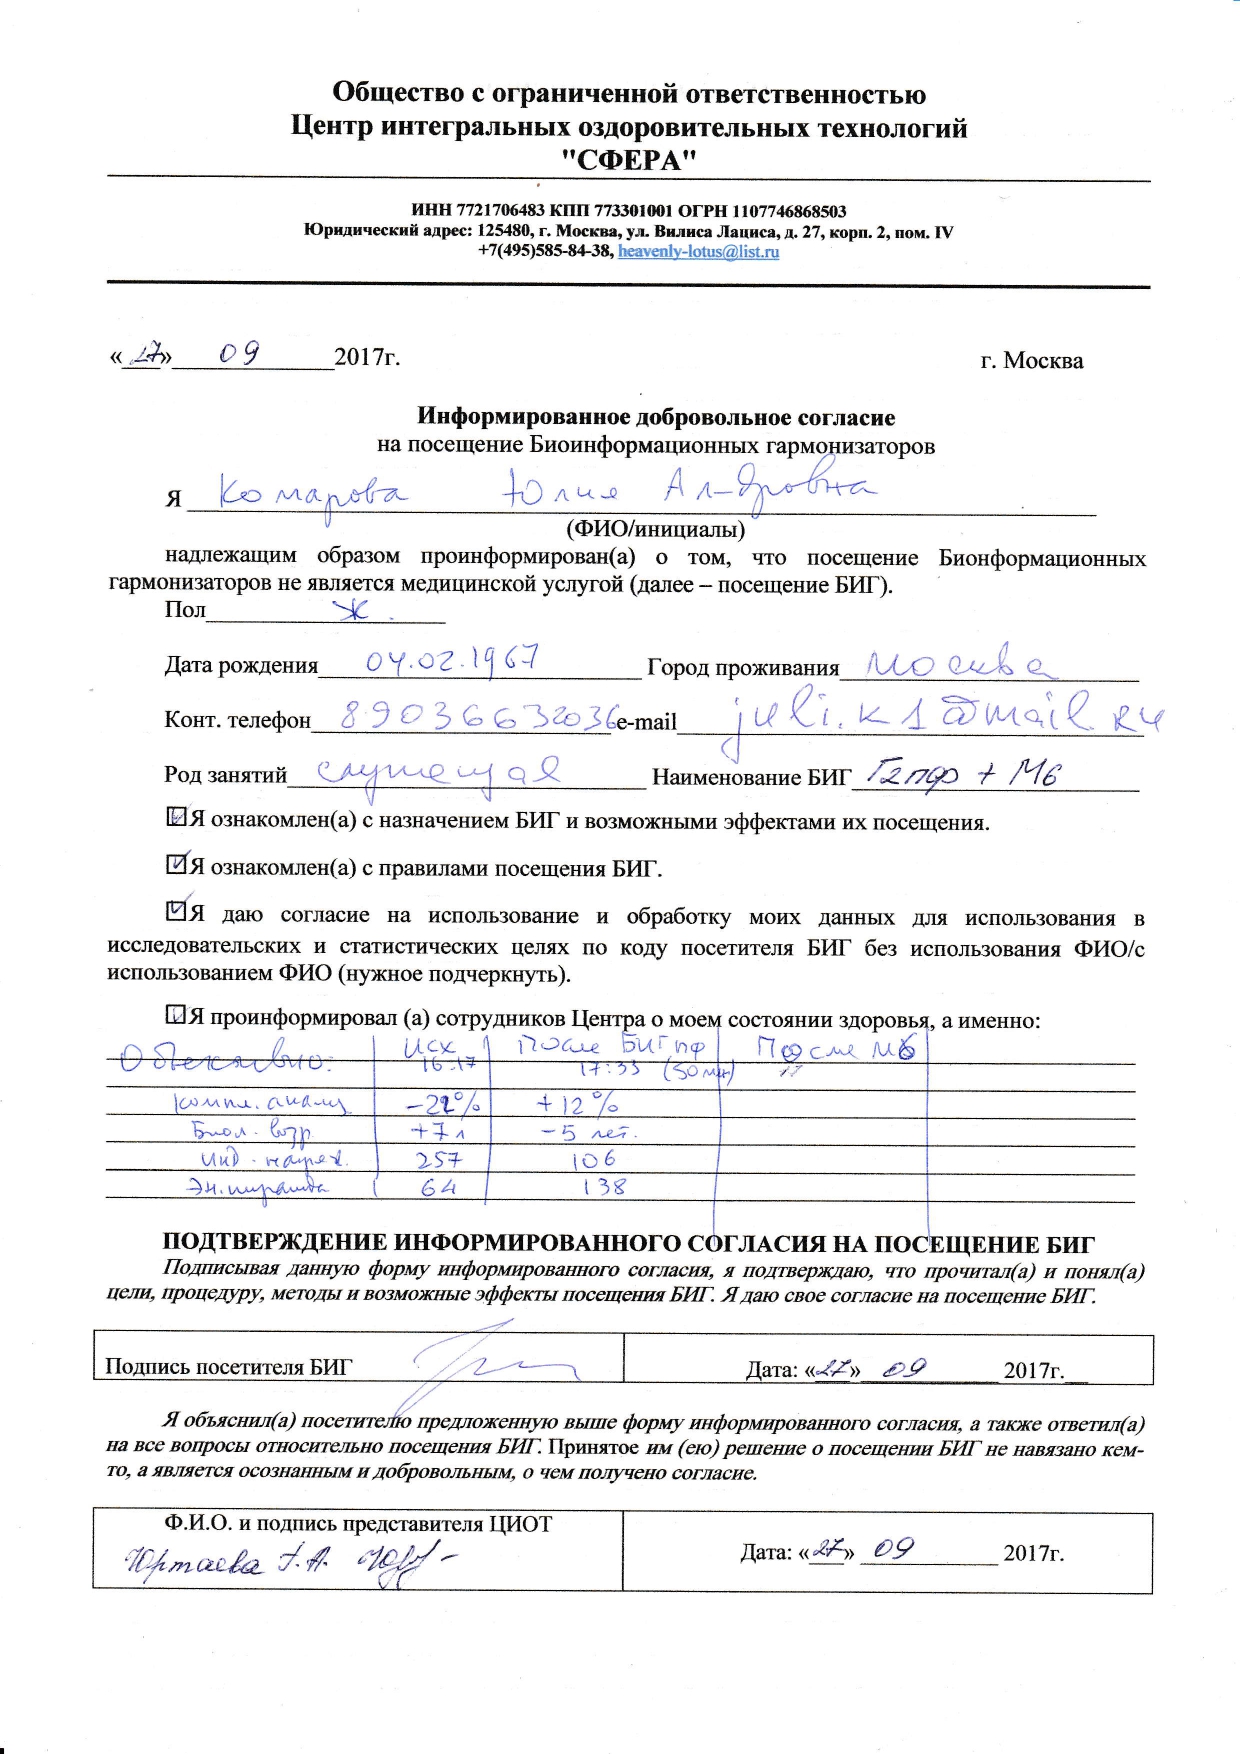 Общество с ограниченной ответственностью
Центр интегральных оздоровительных технологий
"СФЕРА"
ИНН 7721706483 КПП 773301001 ОГРН 1107746868503
Юридический адрес: 125480, г. Москва, ул. Вилиса Лациса, д. 27, корп. 2, пом. IV
+7(495)585-84-38, heavenly-lotus@list.ru
«27» 09 2017г. г. Москва
Информированное добровольное согласие
на посещение Биоинформационных гармонизаторов
Я Комарова Юлия Ал-дровна
(ФИО/инициалы)
надлежащим образом проинформирован(а) о том, что посещение Бионформационных
гармонизаторов не является медицинской услугой (далее – посещение БИГ).
Пол Ж.
Дата рождения 04.02.1967 Город проживания Москва
Конт. телефон 89036632036 e-mail juli.k1@mail.ru
Род занятий служащая Наименование БИГ Г2пф + М6
Я ознакомлен(а) с назначением БИГ и возможными эффектами их посещения.
Я ознакомлен(а) с правилами посещения БИГ.
Я даю согласие на использование и обработку моих данных для использования в
исследовательских и статистических целях по коду посетителя БИГ без использования ФИО/с
использованием ФИО (нужное подчеркнуть).
Я проинформировал (а) сотрудников Центра о моем состоянии здоровья, а именно:
Объективно: Исх После БИГпф После М6
16:17 17:33 (50 мин)
компл. анализ -22% +12%
Биол. возр +7 л -5 лет.
Инд. напряж. 257 106
Эн. пирамида 64 138
ПОДТВЕРЖДЕНИЕ ИНФОРМИРОВАННОГО СОГЛАСИЯ НА ПОСЕЩЕНИЕ БИГ
Подписывая данную форму информированного согласия, я подтверждаю, что прочитал(а) и понял(а)
цели, процедуру, методы и возможные эффекты посещения БИГ. Я даю свое согласие на посещение БИГ.
Подпись посетителя БИГ Дата: «27» 09 2017г.
Я объяснил(а) посетителю предложенную выше форму информированного согласия, а также ответил(а)
на все вопросы относительно посещения БИГ. Принятое им (ею) решение о посещении БИГ не навязано кем-
то, а является осознанным и добровольным, о чем получено согласие.
Ф.И.О. и подпись представителя ЦИОТ
Юртаева Г.А. Дата: «27» 09 2017г.